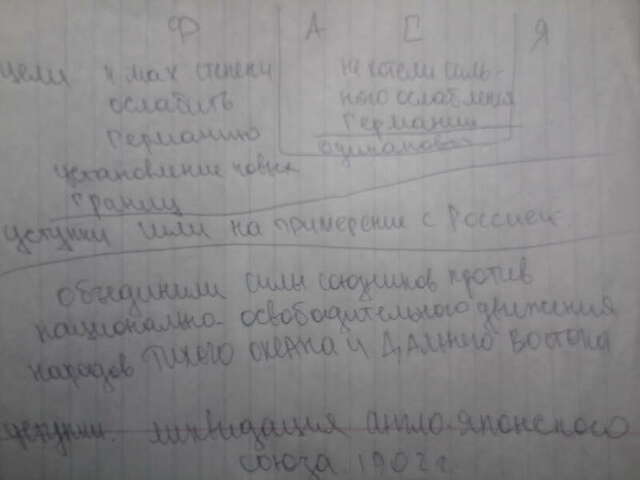 Ф А С Я
цели ч мах степени не хотели силь-
ослабить ного ослабления
Германию Германии
установление новых одинаковая
границ
уступки шли на примерение с Россией
объединили силы союзников против
национально-освободительного движения
народов Тихого океана и Дальнего Востока
уступки ликвидация англо-японского
союза 1902 г.